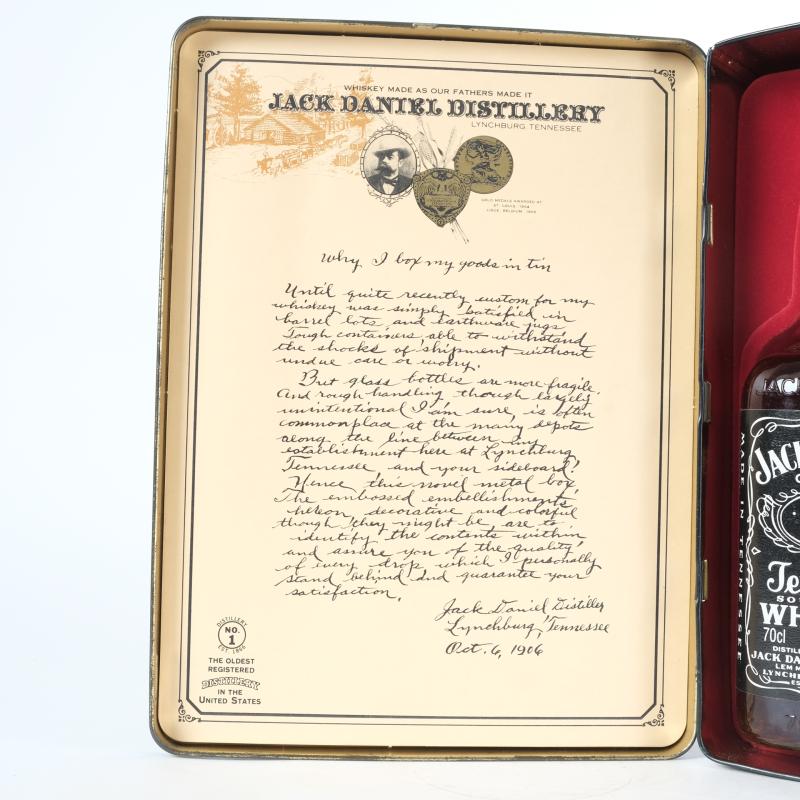 WHISKEY MADE AS OUR FATHERS MADE IT
JACK DANIEL DISTILLERY
LYNCHBURG TENNESSEE
GOLD MEDALS AWARDED AT
ST. LOUIS, 1904
LIEGE, BELGIUM, 1905
Why I box my goods in tin
Until quite recently custom for my
whiskey was simply satisfied in
barrel lots and earthware jugs
Tough containers able to withstand
the shocks of shipment without
undue care or worry.
But glass bottles are more fragile.
And rough handling though largely
unintentional I am sure, is often
commonplace at the many depots
along the line between my
establishment here at Lynchburg,
Tennessee and your sideboard!
Hence this novel metal box
The embossed embellishments
hereon, decorative and colorful
though they might be, are to
identify the contents within
and assure you of the quality
of every drop which I personally
stand behind and guarantee your
satisfaction.
Jack Daniel Distiller
Lynchburg, Tennessee
Oct. 6, 1906
DISTILLERY
NO.
1
EST. 1866
THE OLDEST
REGISTERED
DISTILLERY
IN THE
UNITED STATES
JACK
MADE IN TENNESSEE
JACK
Te
SO
WH
70cl
DISTIL
JACK DA
LEM M
LYNCHB
ES